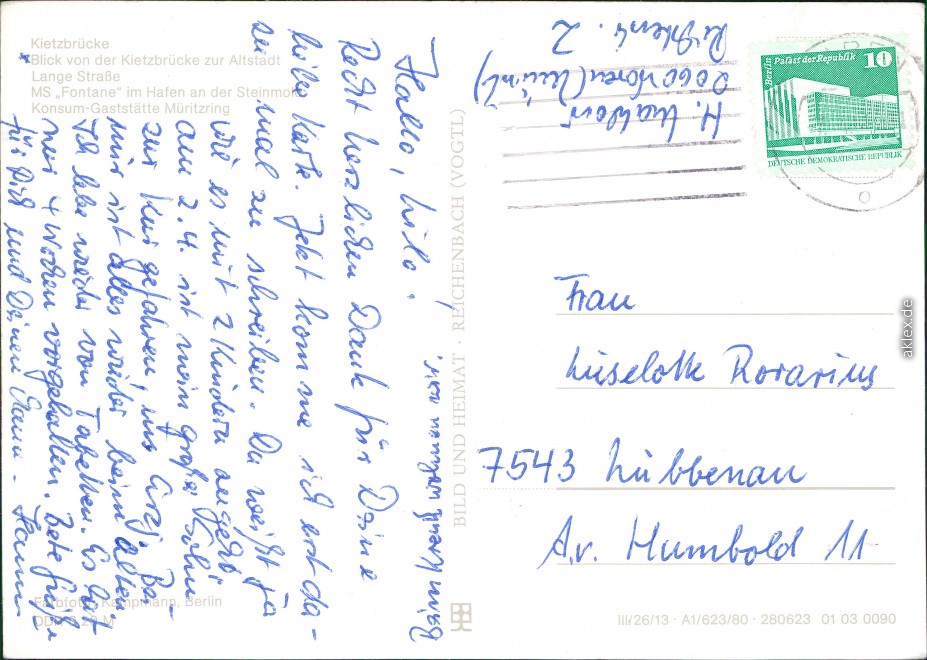 Kietzbrücke
Blick von der Kietzbrücke zur Altstadt
Lange Straße
MS „Fontane" im Hafen an der Steinmole
Konsum-Gaststätte Müritzring
Hallo, Lilo!
Recht herzlichen Dank für Deine
liebe Karte. Jetzt komme ich erst da-
zu mal zu schreiben. Du weißt ja
wie es mit 2 Kindern
am 2.4. ist mein große Sohn
zur Kur gefahren, ins Erzg. Bei
mir ist alles wieder beim alten
Ich lebe wieder von Tabletten. Es hat
nur 4 Wochen vorgehalten. Liebe Grüße
für Dich und Deinen Mann. Hanni
BILD UND HEIMAT · REICHENBACH (VOGTL)
Farbfoto: Kampmann, Berlin
2060 Waren (Müritz)
Berlin Palast der Republik 10
DEUTSCHE DEMOKRATISCHE REPUBLIK
Frau
Liselotte Rorarius
7543 Lübbenau
A.v. Humbold 11
III/26/13 · A1/623/80 · 280623 01 03 0090
akleX.de